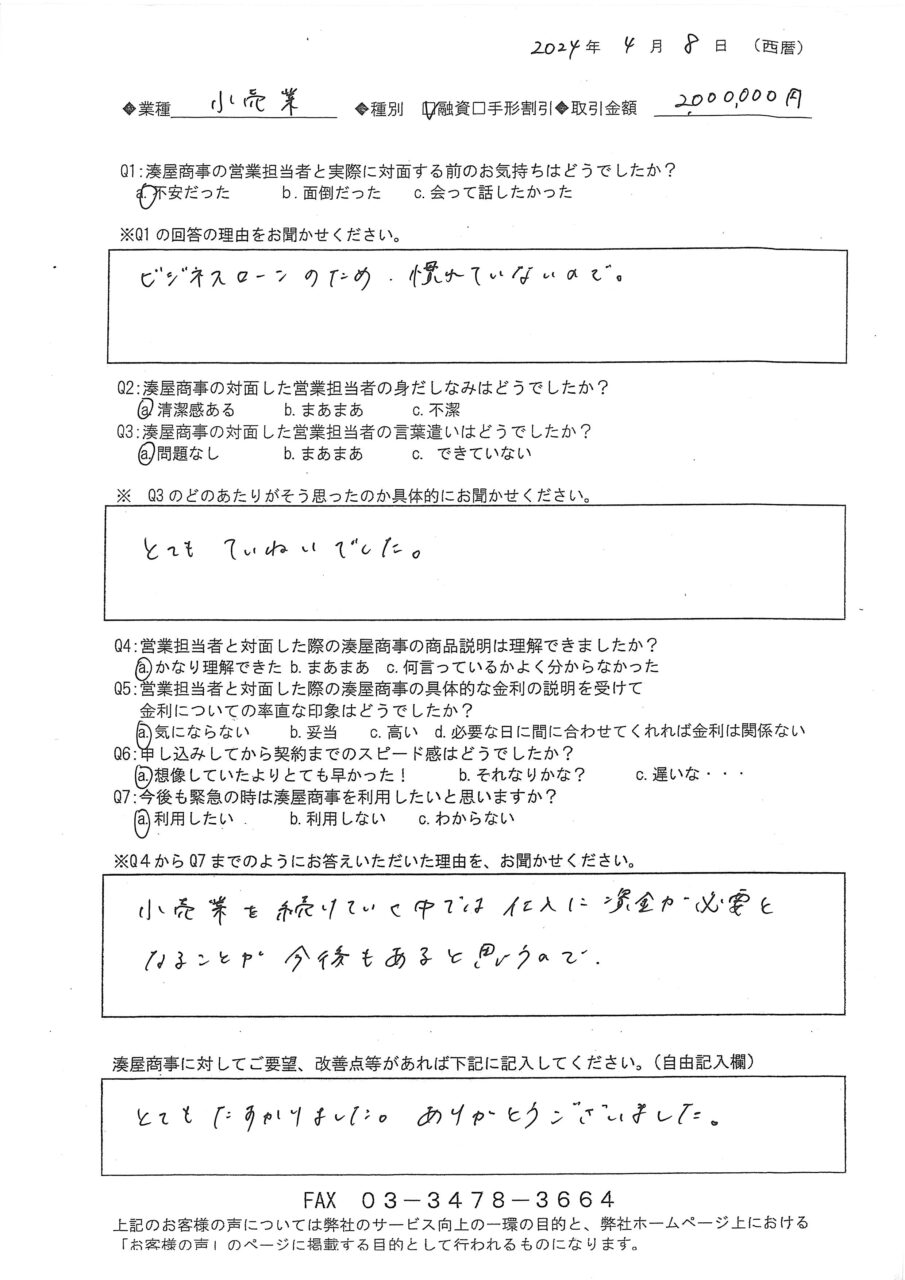 2024年 4月 8日 (西暦)
◆業種 小売業 ◆種別 ☑融資□手形割引◆取引金額 2,000,000円
Q1:湊屋商事の営業担当者と実際に対面する前のお気持ちはどうでしたか?
a.不安だった b.面倒だった c.会って話したかった
※Q1の回答の理由をお聞かせください。
ビジネスローンのため、慣れていないので。
Q2:湊屋商事の対面した営業担当者の身だしなみはどうでしたか?
a.清潔感ある b.まあまあ c.不潔
Q3:湊屋商事の対面した営業担当者の言葉遣いはどうでしたか?
a.問題なし b.まあまあ c. できていない
※ Q3のどのあたりがそう思ったのか具体的にお聞かせください。
とても ていねいでした。
Q4:営業担当者と対面した際の湊屋商事の商品説明は理解できましたか?
a.かなり理解できた b.まあまあ c.何言っているかよく分からなかった
Q5:営業担当者と対面した際の湊屋商事の具体的な金利の説明を受けて
金利についての率直な印象はどうでしたか?
a.気にならない b.妥当 c.高い d.必要な日に間に合わせてくれれば金利は関係ない
Q6:申し込みしてから契約までのスピード感はどうでしたか?
a.想像していたよりとても早かった! b.それなりかな? c.遅いな・・・
Q7:今後も緊急の時は湊屋商事を利用したいと思いますか?
a.利用したい b.利用しない c.わからない
※Q4からQ7までのようにお答えいただいた理由を、お聞かせください。
小売業を続けていく中では仕入に資金が必要と
なることが今後もあると思うので.
湊屋商事に対してご要望、改善点等があれば下記に記入してください。(自由記入欄)
とてもたすかりました。ありがとうございました。
FAX 03-3478-3664
上記のお客様の声については弊社のサービス向上の一環の目的と、弊社ホームページ上における
「お客様の声」のページに掲載する目的として行われるものになります。